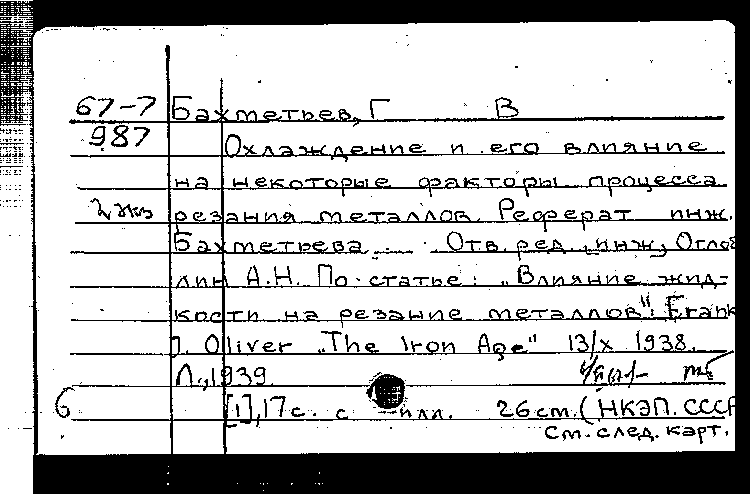 67-7 Бахметьев, Г В
987 Охлаждение и его влияние
на некоторые факторы процесса
2 экз резания металлов. Реферат инж.
Бахметьева. Отв. ред. инж, Огло
лин А.Н. По статье: „Влияние жид-
кости на резание металлов": Frank
J. Oliver „The Iron Age" 13/X 1938.
Л., 1939.
6 [1], 17 с. с илл. 26 см. (НКЭП. СССР
См. след. карт.